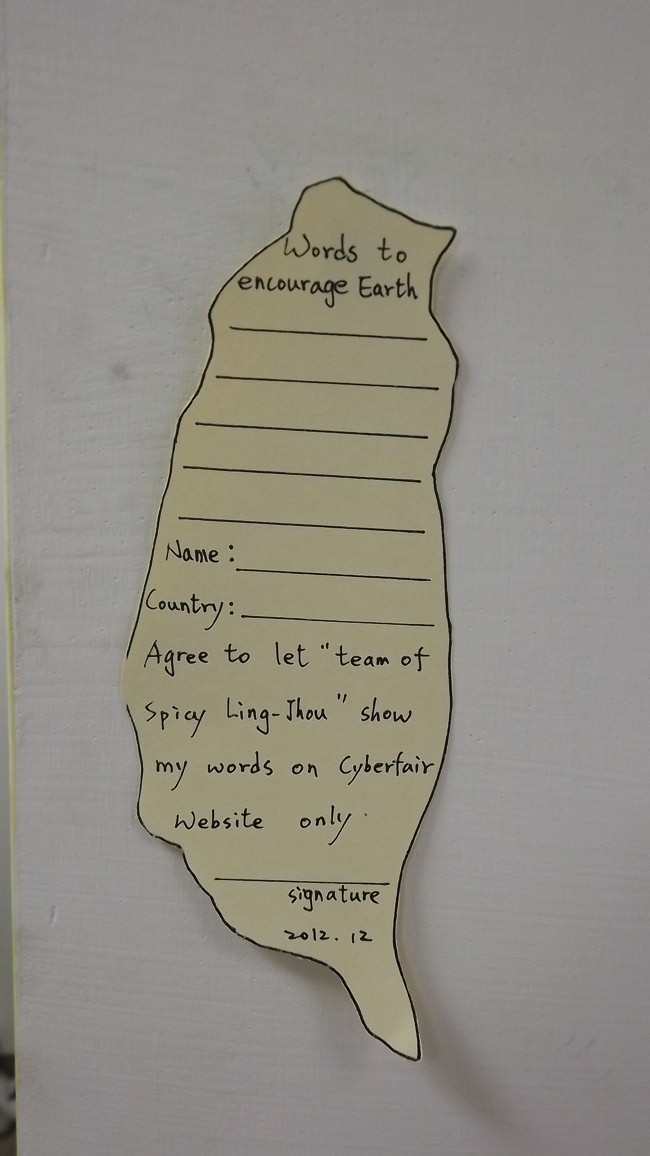 Words to
encourage Earth
Name:
Country:
Agree to let "team of
Spicy Ling-Jhou" show
my words on Cyberfair
Website only.
signature
2012.12